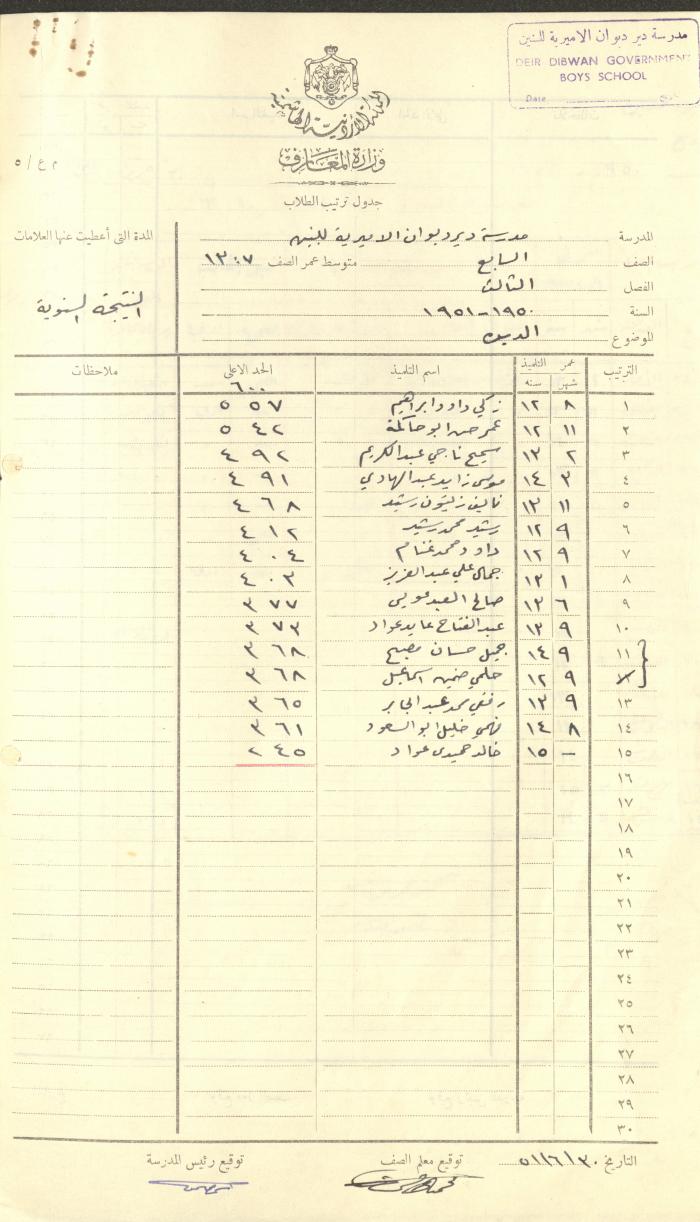 مدرسة دير ديوان الاميرية للبنين
DEIR DIBWAN GOVERNMENT
BOYS SCHOOL
Date
تاريخ
المملكة الأردنية الهاشمية
وزارة المعارف
م ع / ٥
جدول ترتيب الطلاب
المدرسة مدرسة دير ديوان الاميرية للبنين
المدة التى أعطيت عنها العلامات
الصف السابع متوسط عمر الصف ١٣٠٧
الفصل الثالث
النتيجة السنوية
السنة ١٩٥٠-١٩٥١
الموضوع الدين
الترتيب عمر التلميذ اسم التلميذ الحد الاعلى ملاحظات
شهر سنه ٦٠٠
١ ٨ ١٢ زكي داود ابراهيم ٥٥٧
٢ ١١ ١٢ عمر حسن ابو حاكمة ٥٤٢
٣ ٢ ١٣ سميح ناجي عبد الكريم ٤٩٢
٤ ٣ ١٤ موسى زايد عبد الهادي ٤٩١
٥ ١١ ١٣ نايف زيتون رشيد ٤٦٨
٦ ٩ ١٢ رشيد محمد رشيد ٤١٢
٧ ٩ ١٢ داود محمد غنام ٤٠٤
٨ ١ ١٣ جمال علي عبد العزيز ٤٠٣
٩ ٦ ١٣ صالح العبد ٣٧٧
١٠ ٩ ١٣ عبد الفتاح عايد عواد ٣٧٣
١١ ٩ ١٤ جميل حسان مصبح ٣٦٨
٩ ١٢ حلمي اسماعيل ٣٦٨
١٣ ٩ ١٣ محمد عبد الجابر ٣٦٥
١٤ ٨ ١٤ فهمي خليل ابو السعود ٣٦١
١٥ – ١٥ خالد حميدي عواد ٢٤٥
١٦
١٧
١٨
١٩
٢٠
٢١
٢٢
٢٣
٢٤
٢٥
٢٦
٢٧
٢٨
٢٩
٣٠
التاريخ ٣٠/٦/٥١ توقيع معلم الصف توقيع رئيس المدرسة